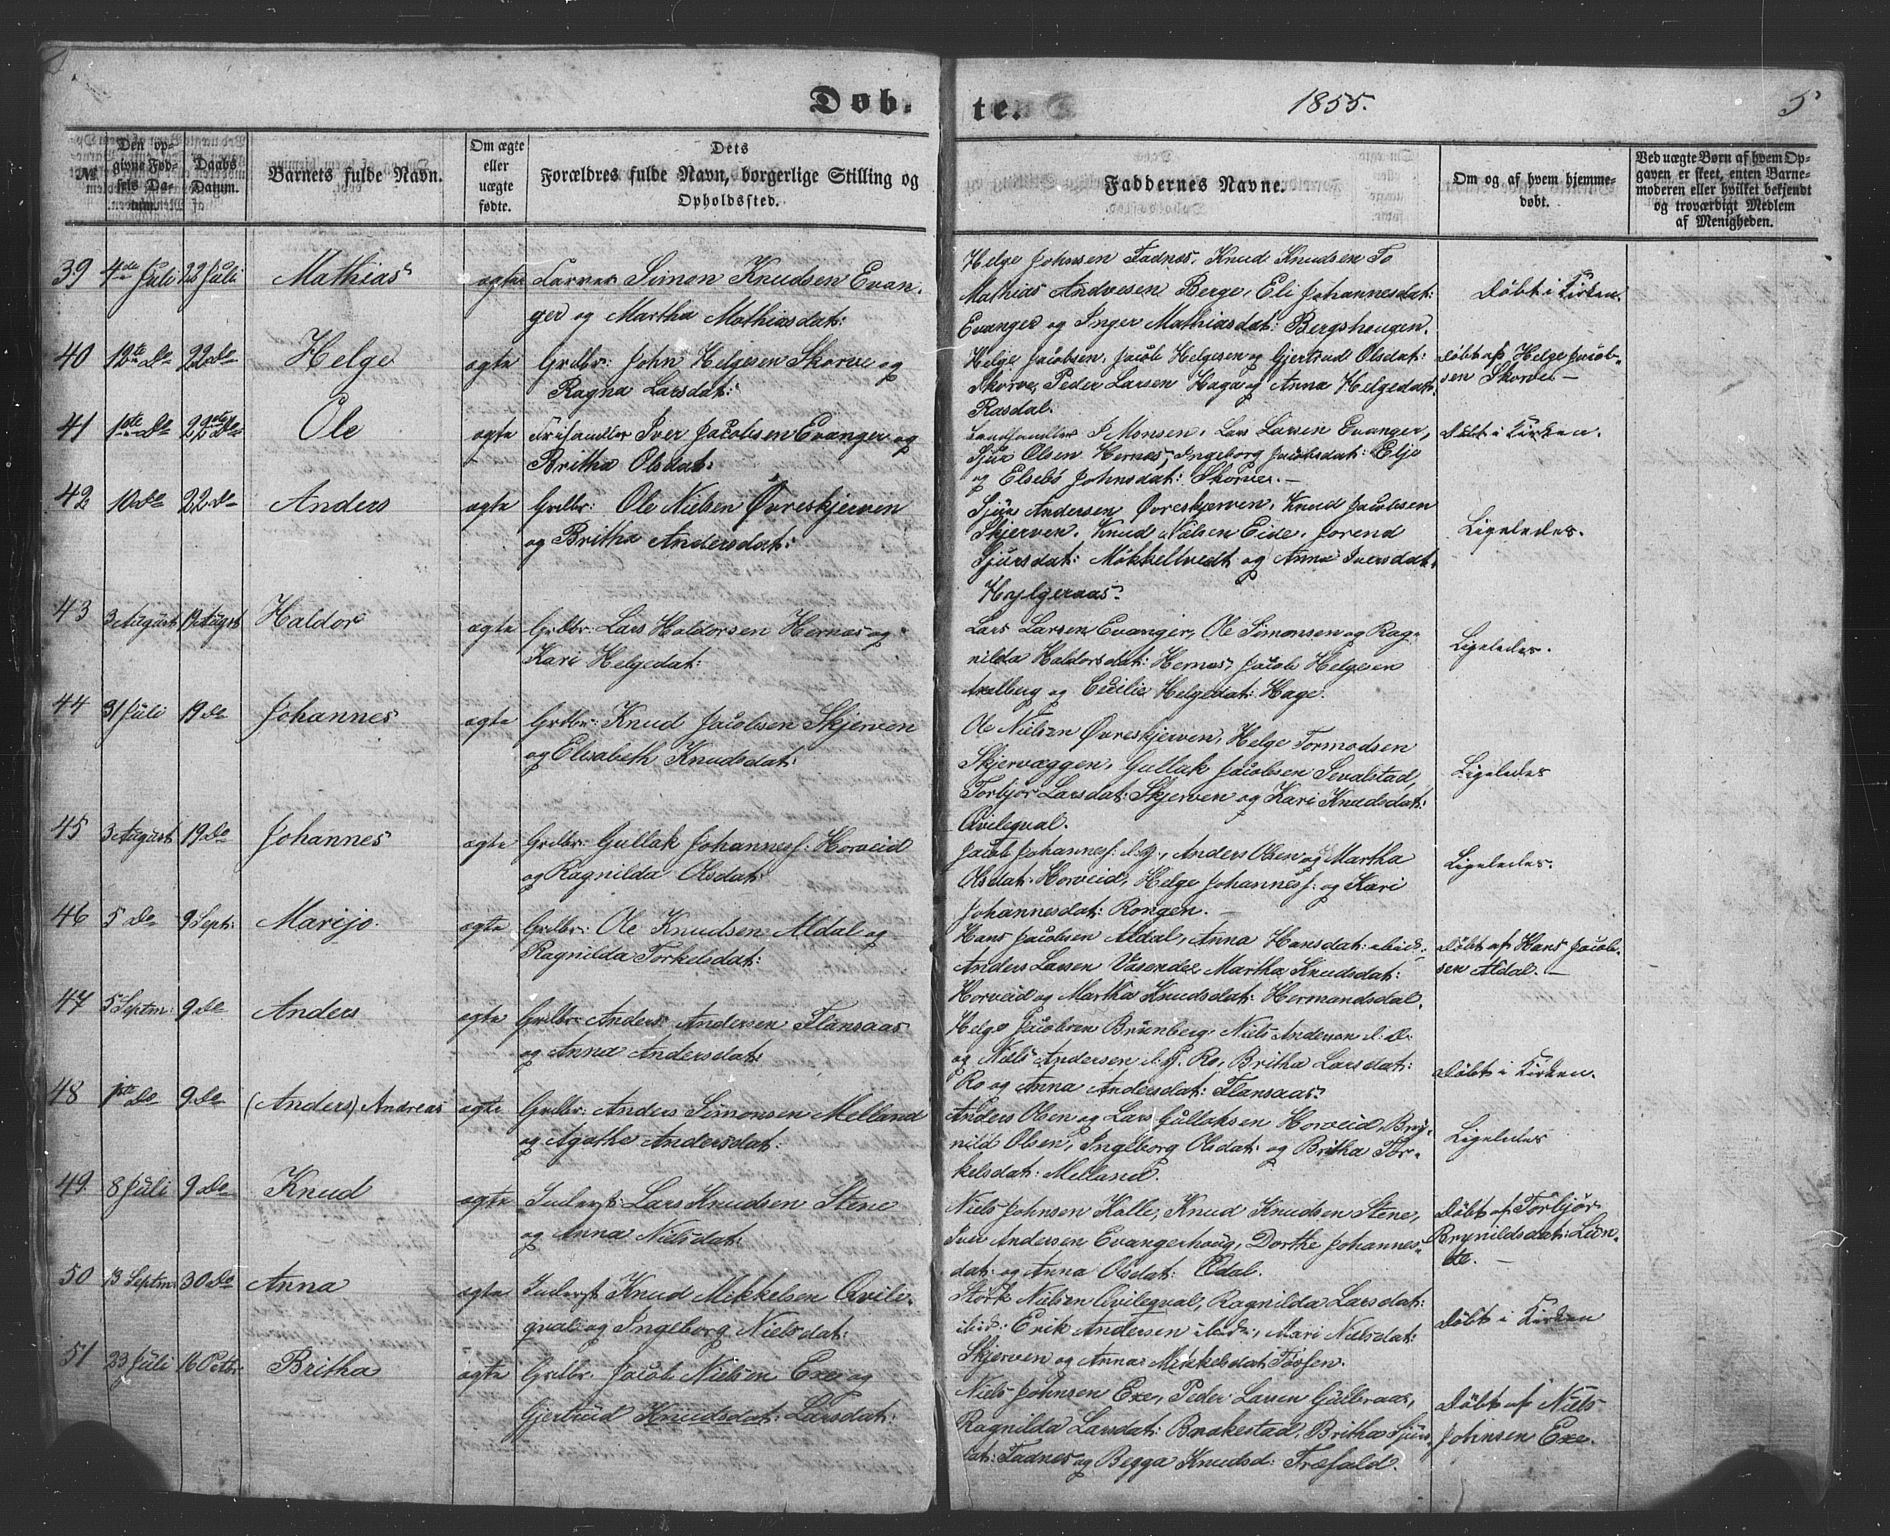 Døb. te. 1855. 5
No.
Den opgivne Fødsels Datum.
Daabs Datum.
Barnets fulde Navn.
Om ægte eller uægte fødte.
Dets Forældres fulde Navn, borgerlige Stilling og Opholdssted.
Faddernes Navne.
Om og af hvem hjemmedøbt.
Ved uægte Børn af hvem Opgaven er skeet, enten Barnemoderen eller hvilket bekjendt og troværdigt Medlem af Menigheden.
39 4de Juli 22 Juli Mathias ægte Simon Knudsen Evan-
ger og Martha Mathiasdat:
Helge Johnsen Fadnes, Knud Knudsen
Mathias Andvesen Berge, Eli Johannesdat:
Evanger og Inger Mathiasdat: Bergshougen.
Døbt i Kirken.
40 12te Do 22 Do Helge ægte Grdbr: John Helgesen Skorve og
Ragna Larsdat:
Helge Jacobsen, Jacob Helgesen og Gjertrud Olsdat:
Skorve, Peder Larsen Haga og Anna Helgedat:
Rasdal.
Døbt af Helge Jacob-
sen Skorve.—
41 1ste Do 22 Do Ole ægte Iver Jacobsen Evanger og
Britha Olsdat:
Landhandler I Monsen, Lars Larsen Evanger,
Sjur Olsen Hernes, Ingeborg Jacobsdat:
og Elsebe Johnsdat: Skorve.—
Døbt i Kirken.
42 10 Do 22 Do Anders ægte Grdbr: Ole Nielsen Øvreskjerven
og Britha Andersdat:
Sjur Andersen Øvreskjerven, Knud Jacobsen
Skjerven, Knud Nilsen Eide, Jorend
Sjursdat: Møkkeltvedt og Anna Iversdat:
Hylgeraas.
Ligeledes.
43 3 August 19 August Haldor ægte Grdbr: Lars Haldorsen Hernes og
Kari Helgedat:
Lars Larsen Evanger, Ole Simonsen og Rag-
nilda Haldorsdat: Hernes, Jacob Helgesen
og Cecilie Helgedat: Hage.
Ligeledes.
44 31 Juli 19 Do Johannes ægte Grdbr: Knud Jacobsen Skjerven
og Elisabeth Knudsdat:
Ole Nielsen Øvreskjerven, Helge Tormodsen
Skjervæggen, Gullak Jacobsen Sevalstad,
Torbjør Larsdat: Skjerven og Kari Knudsdat:
Qvilequal.
Ligeledes
45 3 August 19 Do Johannes ægte Grdbr: Gullak Johannesf: Horveid
og Ragnilda Olsdat:
Jacob Johannesf: Anders Olsen og Martha
Olsdat: Horveid, Helge Johannesf: og Kari
Johannesdat: Rongen.—
Ligeledes.
46 5 Do 9 Sept: Marijo. ægte Grdbr: Ole Knudsen Aldal og
Ragnilda Torkelsdat:
Hans Jacobsen Aldal, Anna Hansdat: ibid:
Anders Larsen Vasenden Martha Knudsdat:
Horveid og Martha Knudsdat: Hermandsdal.
Døbt af Hans Jacob-
sen Aldal.—
47 5 Septm: 9 Do Anders ægte Grdbr: Anders Andersen Flansaas
og Anna Andersdat:
Helge Jacobsen Brunberg, Niels Andersen
og Niels Andersen Ro, Britha Larsdat:
Ro og Anna Andersdat: Flansaas.
Døbt i Kirken.
48 1ste Do 9 Do (Anders) Andreas ægte Grdbr: Anders Simonsen Melland
og Agatha Andersdat:
Anders Olsen og Lars Gullaksen Horveid, Bry-
nild Olsen, Ingeborg Olsdat: og Britha Tor-
kelsdat: Melland.
Ligeledes
49 8 Juli 9 Do Knud ægte Inderst: Lars Knudsen Stene
og Anna Nielsdat:
Niels Johnsen Kalle, Knud Knudsen Stene,
Iver Andersen Evangerhoug, Dorthe Johannes-
dat: og Anna Olsdat: Ødal.
Døbt af Torbjør
Brynildsdat:
50 13 Septm: 30 Do Anna ægte Inderst Knud Mikkelsen Qvile-
qval og Ingeborg Nielsdat:
Størk Nielsen Qvileqval, Ragnilda Larsdat:
ibid: Erik Andersen ibid:, Mari Nielsdat:
Skjerven og Anna Mikkelsdat Tøssen.
Døbt i Kirken
51 23 Juli 16 Octbr: Britha ægte Grdbr: Jacob Nielsen Exe og
Gjertrud Knudsdat: Larsdat:
Niels Johnsen Exe, Peder Larsen Gulbraae,
Ragnilda Larsdat: Brakestad, Britha Sjurs-
dat: Fadnes og Begga Knudsd: Træfald.
Døbt af Niels
Johnsen Exe.